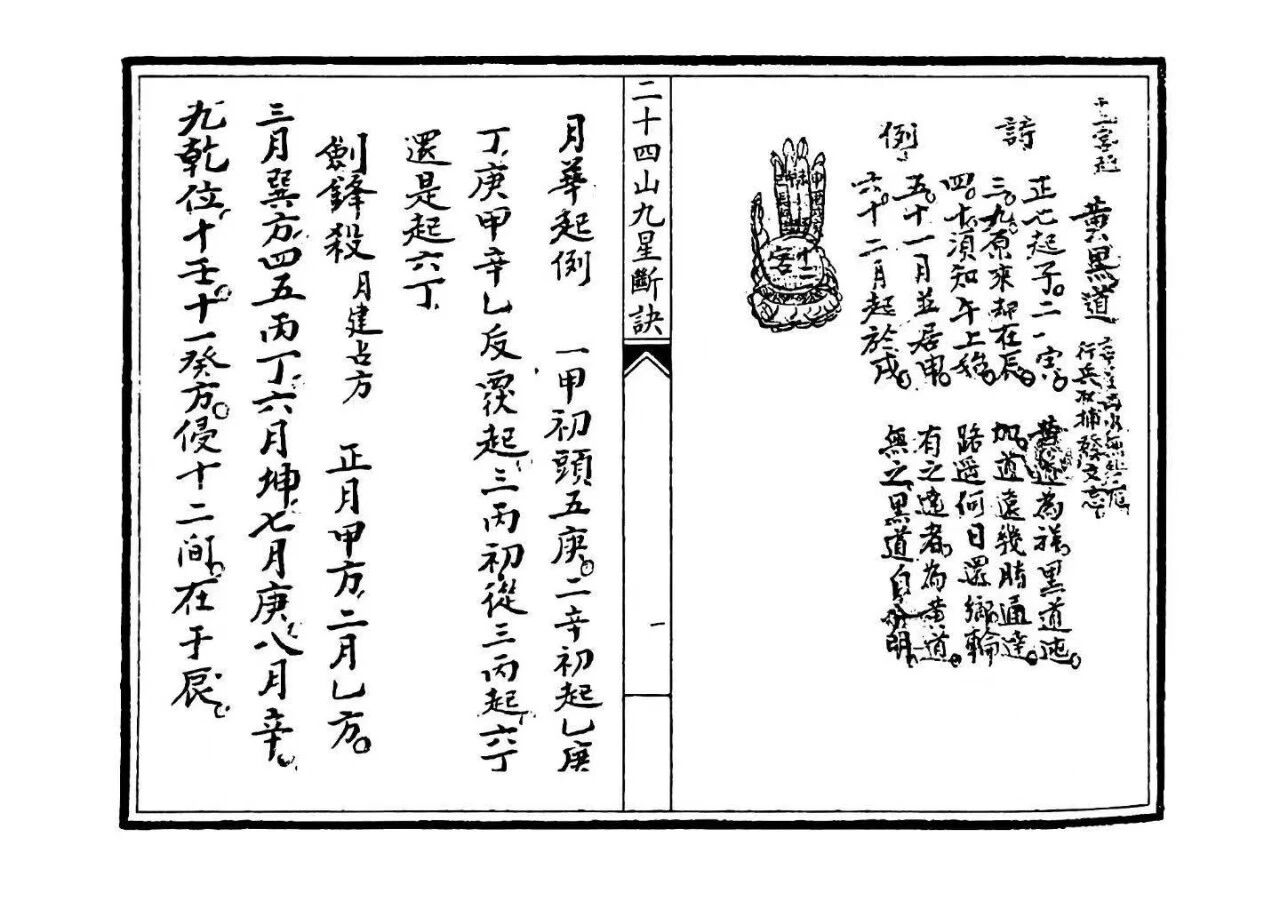 黃黑道
行兵收捕發文
詩例
正七起子。二八寅。
三九原來却在辰。
四十須知午上始。
五十一月並居申。
六十二月起於戌。
黃道為祥黑道迍。
道遠幾時通達。
路遥何日還鄉輪
有之遶者為黃道。
無之黑道自分明
二十四山九星斷訣
一
月華起例 一甲初頭五庚。二辛初起乙庚
丁、庚甲辛乙反覆起、三丙初從三丙起、六丁
還是起六丁
劍鋒殺 月建占方 正月甲方、二月乙方。
三月巽方、四五丙丁、六月坤、七月庚、八月辛。
九乾位、十壬。十一癸方。侵十二間、在于艮。